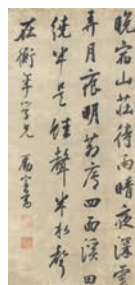 晚宿山莊待雨晴夜深雲
弄月痕明茅齋四面溪田
繞半是蛙聲半聲
在衡年學兄